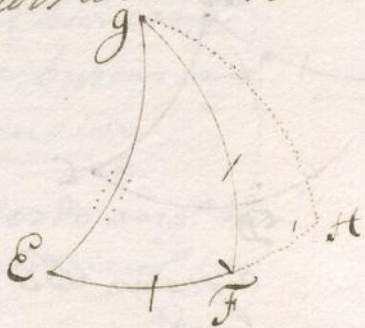 g
H
E
F